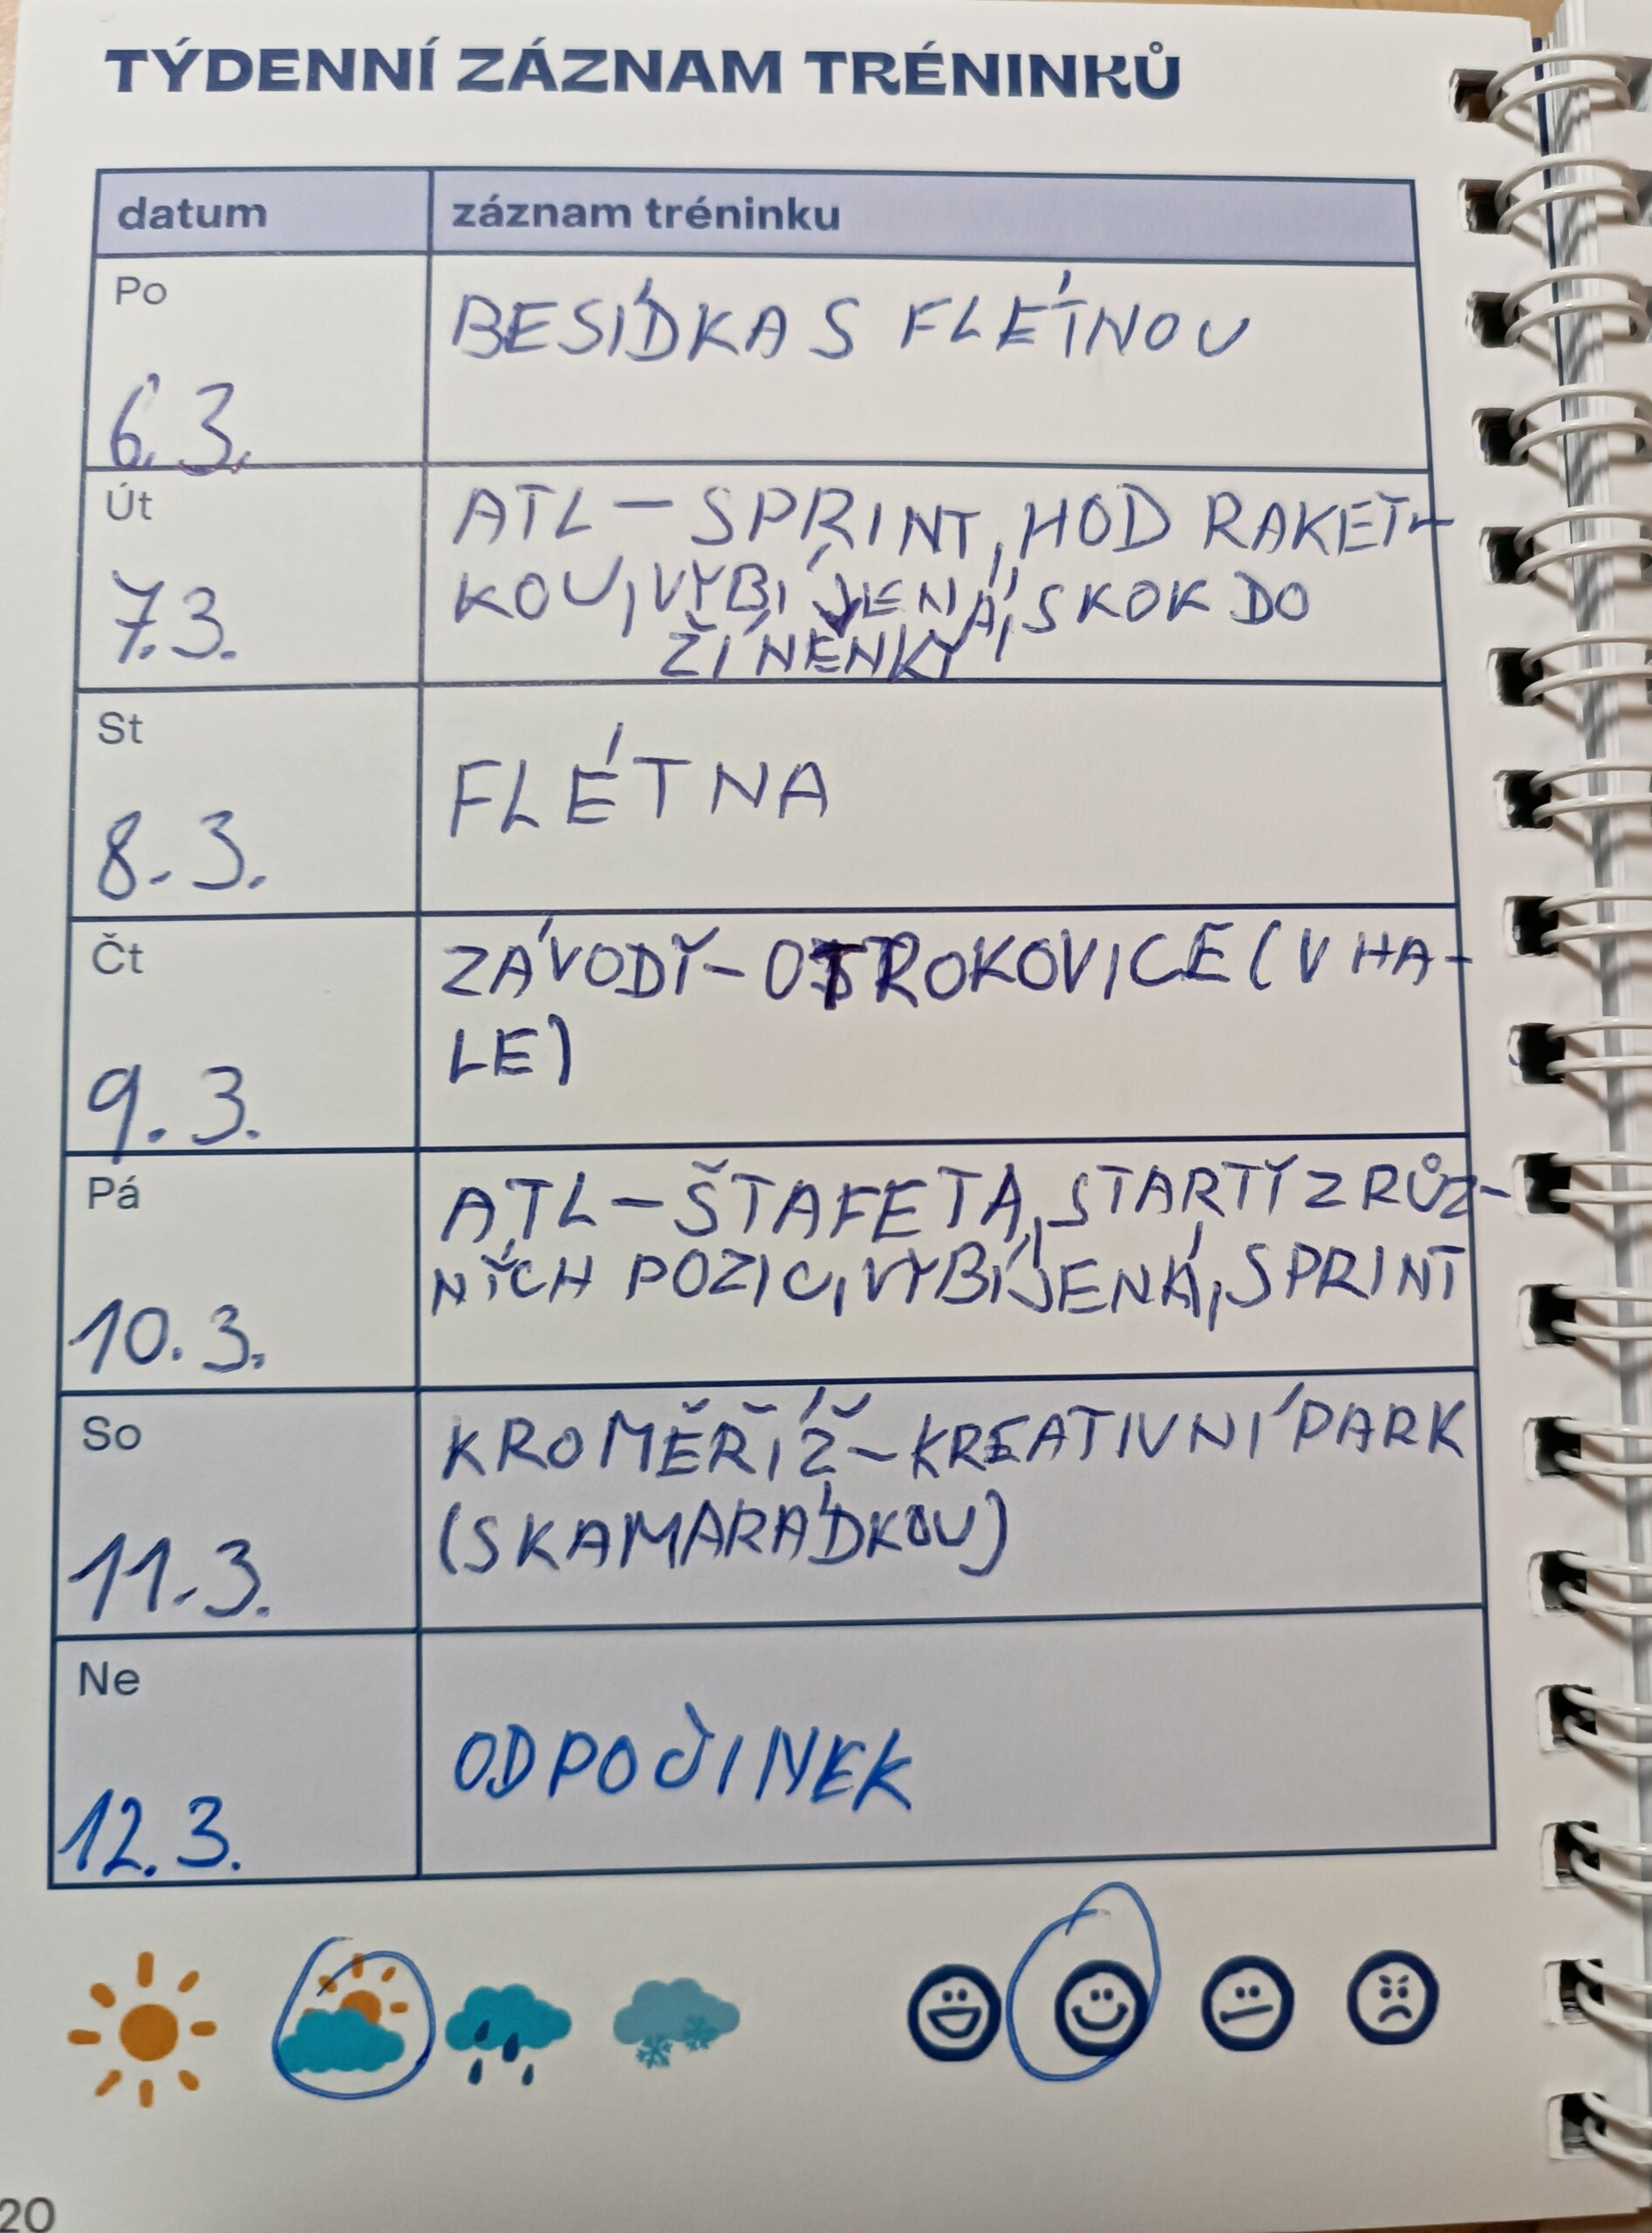 TÝDENNÍ ZÁZNAM TRÉNINKŮ
datum záznam tréninku
Po
BESÍDKA S FLÉTNOU
6.3.
Út
ATL – SPRINT, HOD RAKET-
7.3.
KOU, VYBÍJENÁ, SKOK DO
ŽÍNĚNKY
St
FLÉTNA
8.3.
Čt
ZÁVODY – OTROKOVICE (V HA-
LE)
9.3.
Pá
ATL – ŠTAFETA, STARTY Z RŮZ-
NÝCH POZIC, VYBÍJENÁ, SPRINT
10.3.
So
KROMĚŘÍŽ – KREATIVNÍ PARK
(S KAMARÁDKOU)
11.3.
Ne
ODPOČINEK
12.3.
20